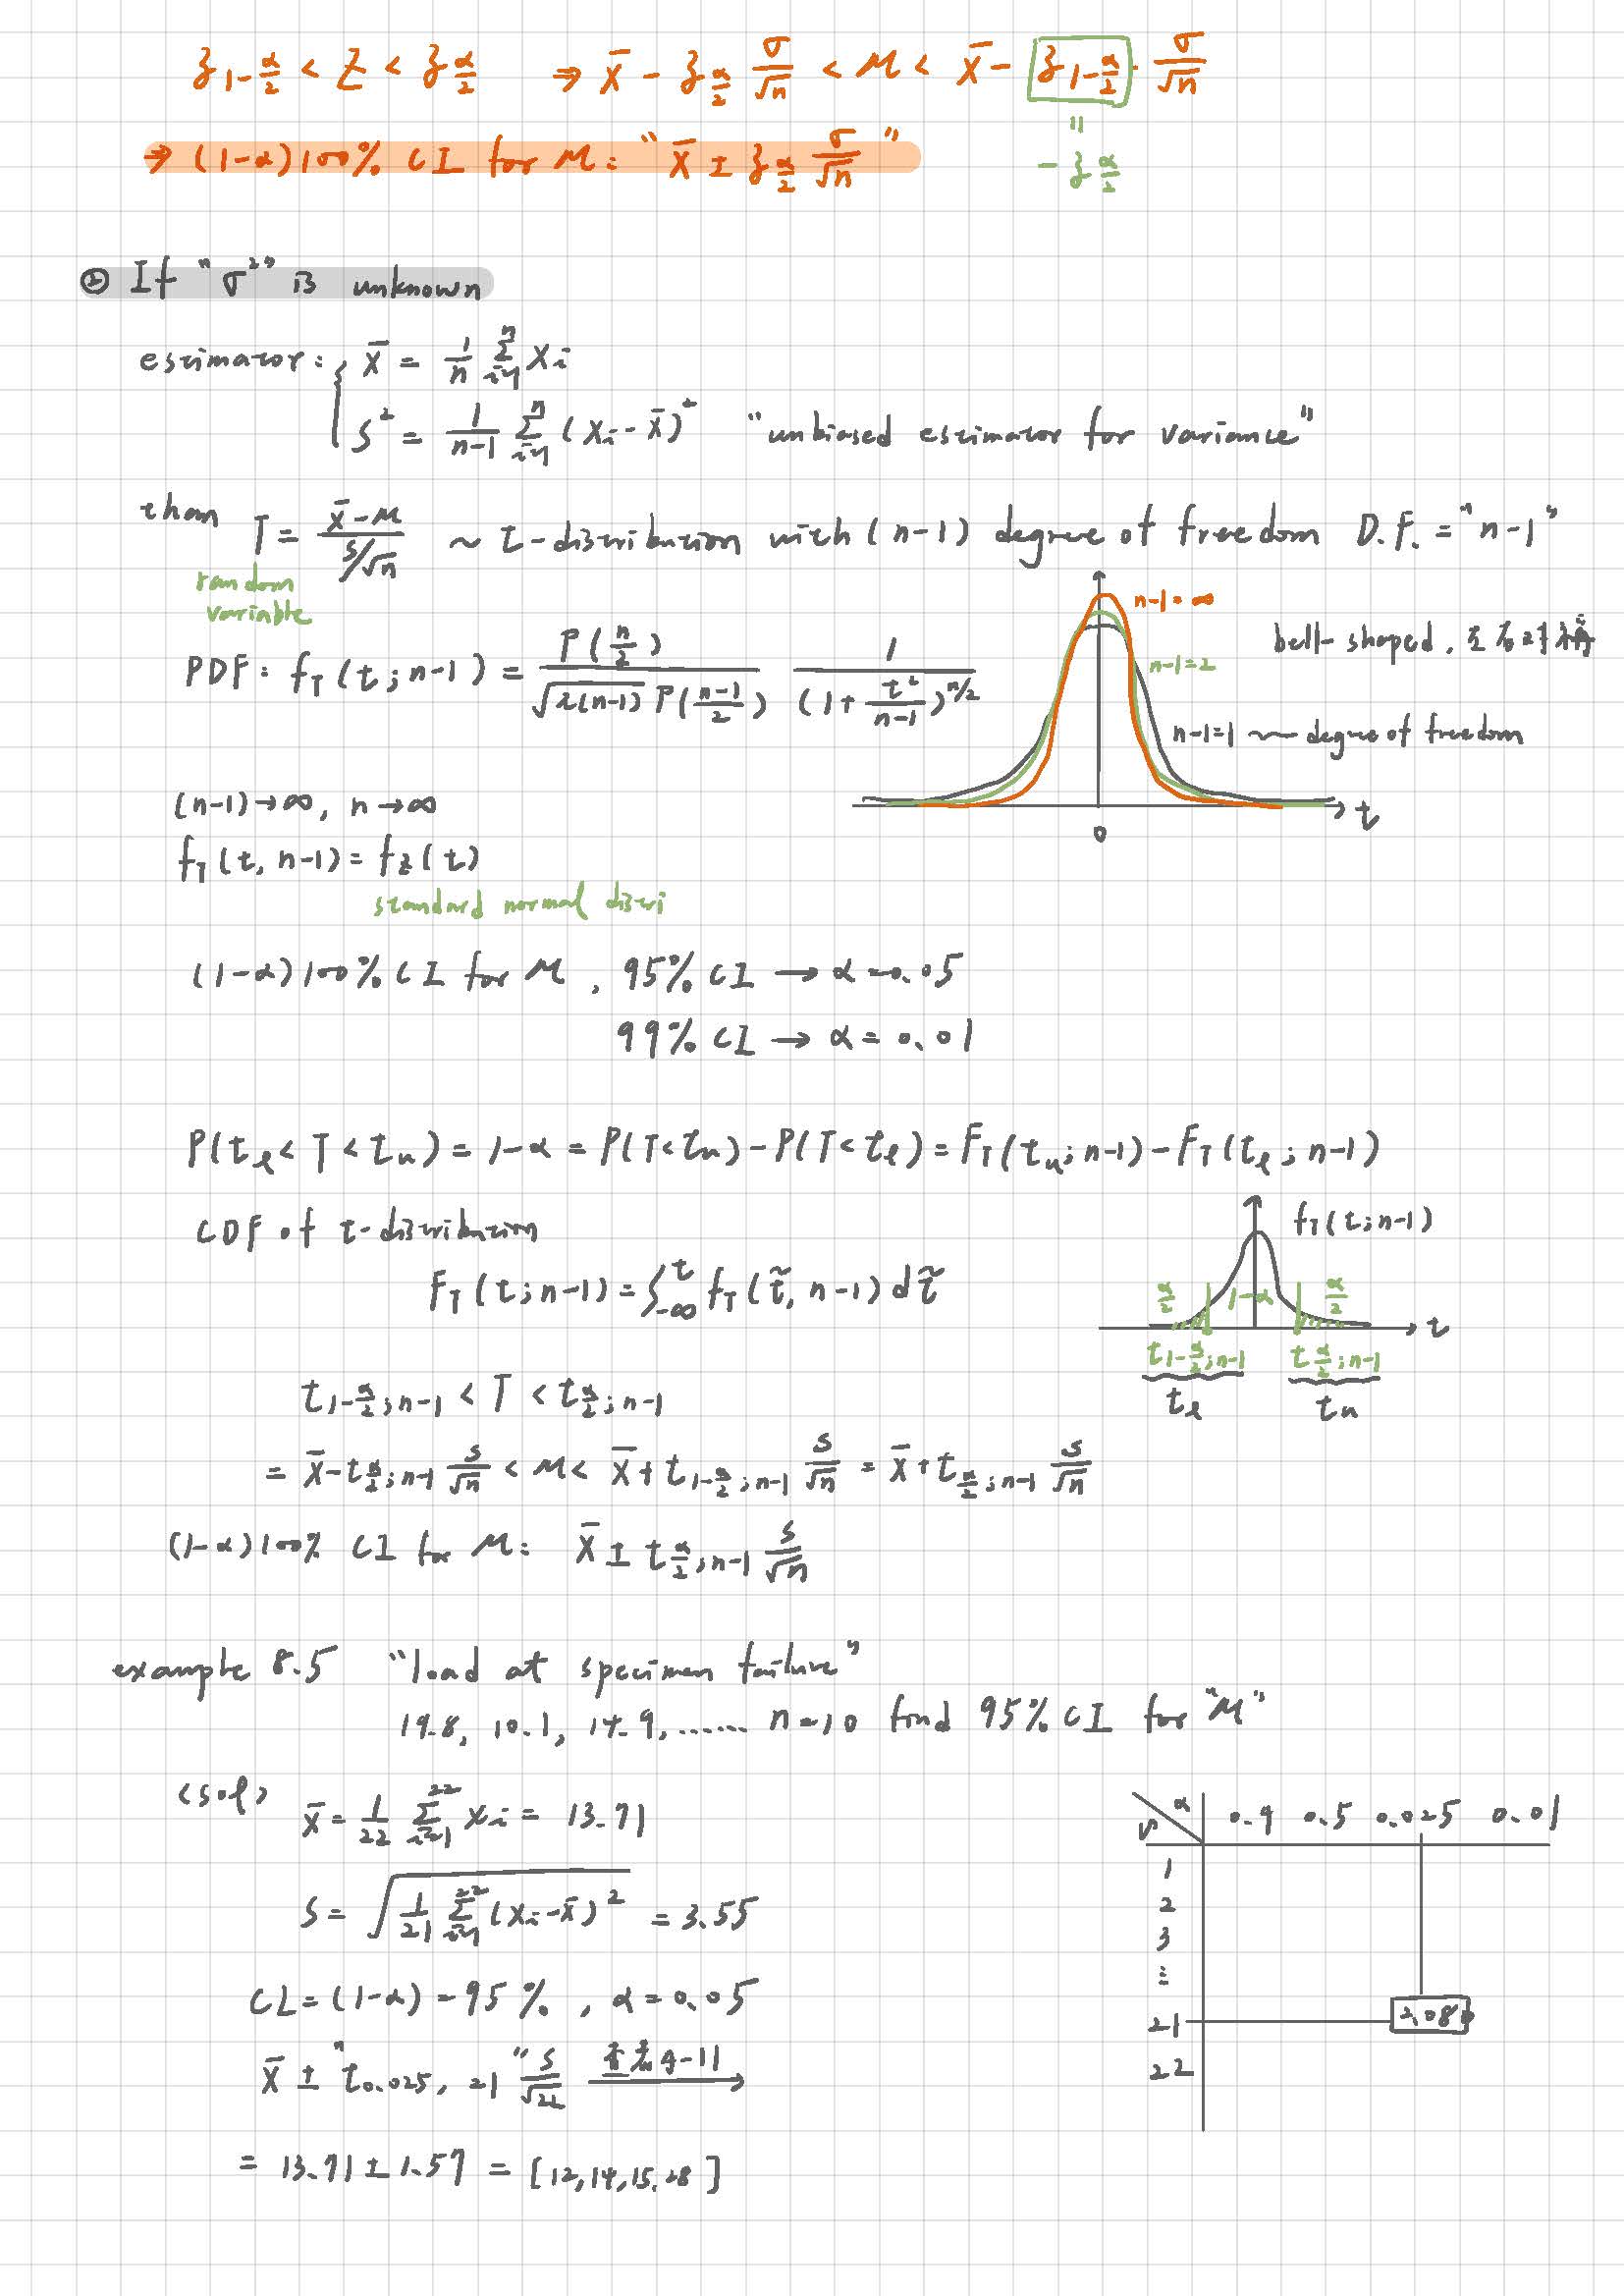 z_{1-α/2} < Z < z_{α/2} ⇒ x̄ - z_{α/2} σ/√n < μ < x̄ - z_{1-α/2} · σ/√n
" = - z_{α/2}
⇒ (1-α)100% CI for μ: " x̄ ± z_{α/2} σ/√n "
② If "σ²" is unknown
estimator: { x̄ = 1/n Σ_{i=1}^{n} Xi
S² = 1/(n-1) Σ_{i=1}^{n} (Xi - x̄)² "unbiased estimator for variance"
then T = (x̄ - μ)/(S/√n) ~ t-distribution with (n-1) degree of freedom D.F. = "n-1"
random
variable
n-1=∞
n-1=2
bell-shaped, 左右對稱
PDF: f_T(t; n-1) = Γ(n/2) / (√(π(n-1)) Γ((n-1)/2)) 1/(1 + t²/(n-1))^{n/2}
n-1=1 ~ degree of freedom
0
t
(n-1)→∞, n→∞
f_T(t, n-1) = f_Z(t)
standard normal distri
(1-α)100% CI for μ, 95% CI → α=0.05
99% CI → α=0.01
P(t_l < T < t_u) = 1-α = P(T<t_u) - P(T<t_l) = F_T(t_u; n-1) - F_T(t_l; n-1)
CDF of t-distribution
f_T(t; n-1)
F_T(t; n-1) = ∫_{-∞}^{t} f_T(t̃, n-1) dt̃
α/2 1-α α/2
t
t_{1-α/2; n-1} t_{α/2; n-1}
t_l t_u
t_{1-α/2; n-1} < T < t_{α/2; n-1}
= x̄ - t_{α/2; n-1} S/√n < μ < x̄ + t_{1-α/2; n-1} S/√n = x̄ + t_{α/2; n-1} S/√n
(1-α)100% CI for μ: x̄ ± t_{α/2; n-1} S/√n
example 8.5 "load at specimen failure"
19.8, 10.1, 14.9, ...... n=10 find 95% CI for "μ"
<sol> x̄ = 1/22 Σ_{i=1}^{22} xi = 13.71
S = √(1/21 Σ_{i=1}^{22} (xi - x̄)²) = 3.55
CL = (1-α) = 95%, α = 0.05
x̄ ± "t_{0.025, 21}" S/√22 查表4-11 →
= 13.71 ± 1.57 = [12,14,15.28]
ν α 0.4 0.5 0.025 0.01
1
2
3
⋮
21 2.080
22